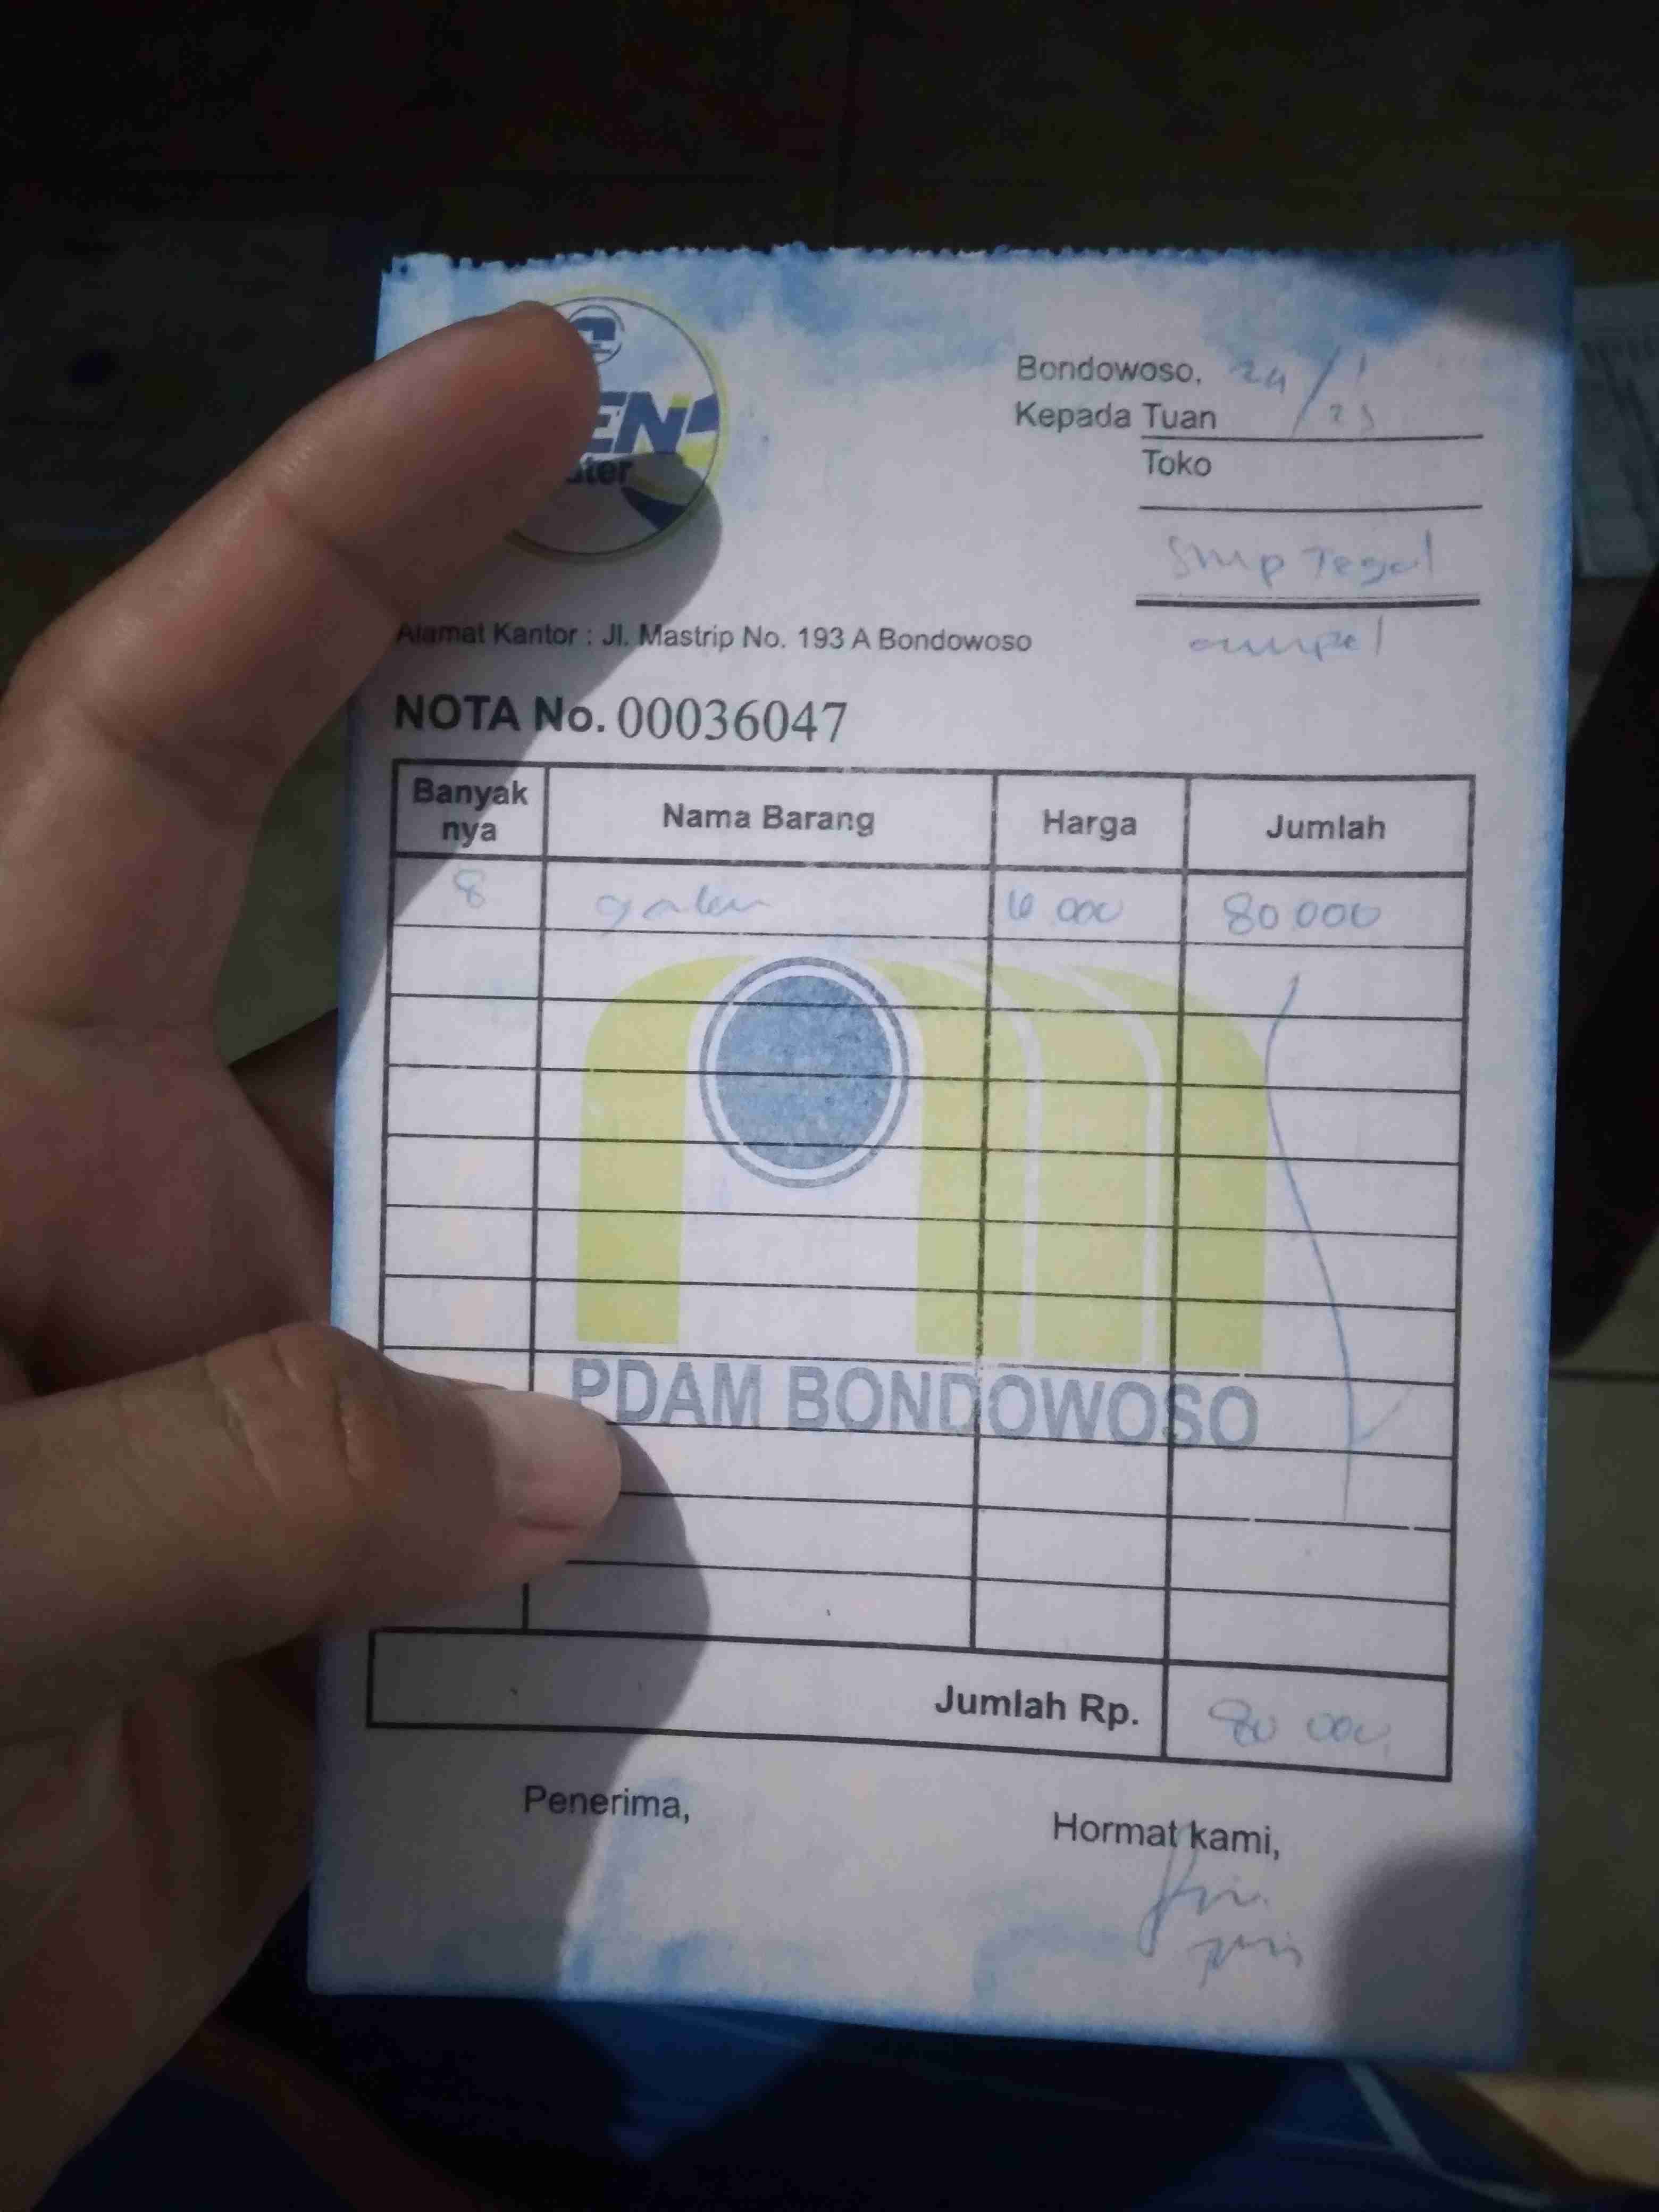 EN
ater
Bondowoso, 24/1
Kepada Tuan 23
Toko
Smp Tegal
ampel
Alamat Kantor : Jl. Mastrip No. 193 A Bondowoso
NOTA No. 00036047
Banyak nya Nama Barang Harga Jumlah
8 galon 10 000 80 000
PDAM BONDOWOSO
Jumlah Rp. 80 000,
Penerima, Hormat kami,